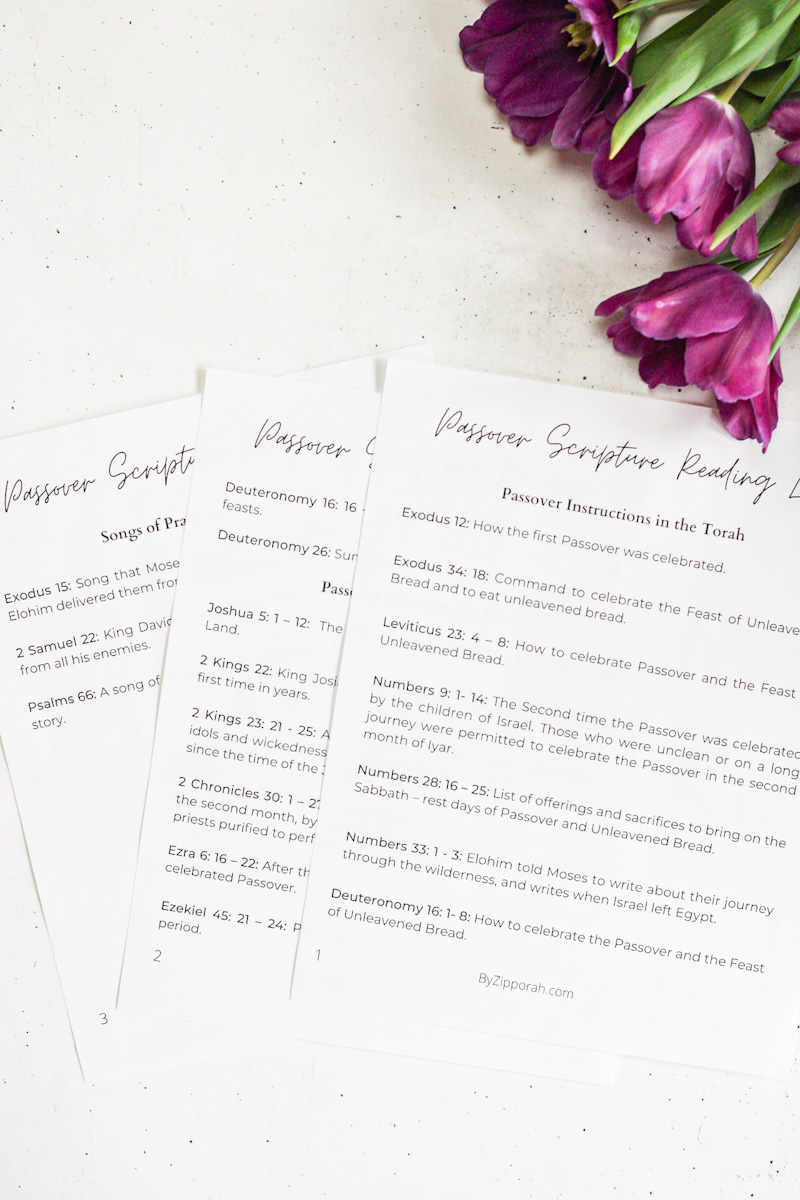 Passover Scripture Reading
Passover Instructions in the Torah
Exodus 12: How the first Passover was celebrated.
Exodus 34: 18: Command to celebrate the Feast of
Bread and to eat unleavened bread.
Leviticus 23: 4 – 8: How to celebrate Passover and the Feast
Unleavened Bread.
Numbers 9: 1- 14: The Second time the Passover was celebrated
by the children of Israel. Those who were unclean or on a long
journey were permitted to celebrate the Passover in the second
month of Iyar.
Numbers 28: 16 – 25: List of offerings and sacrifices to bring on the
Sabbath – rest days of Passover and Unleavened Bread.
Numbers 33: 1 - 3: Elohim told Moses to write about their journey
through the wilderness, and writes when Israel left Egypt.
Deuteronomy 16: 1- 8: How to celebrate the Passover and the Feast
of Unleavened Bread.
1
ByZipporah.com
Passover
Deuteronomy 16: 16 -
feasts.
Deuteronomy 26:
Joshua 5: 1 – 12: The
Land.
2 Kings 22: King
first time in years.
2 Kings 23: 21 - 25:
idols and wickedness
since the time of the
2 Chronicles 30: 1 –
the second month, by
priests purified to
Ezra 6: 16 – 22: After
celebrated Passover.
Ezekiel 45: 21 – 24:
period.
2
Passover
Songs of
Exodus 15: Song that
Elohim delivered them
2 Samuel 22: King
from all his enemies.
Psalms 66: A song of
story.
3